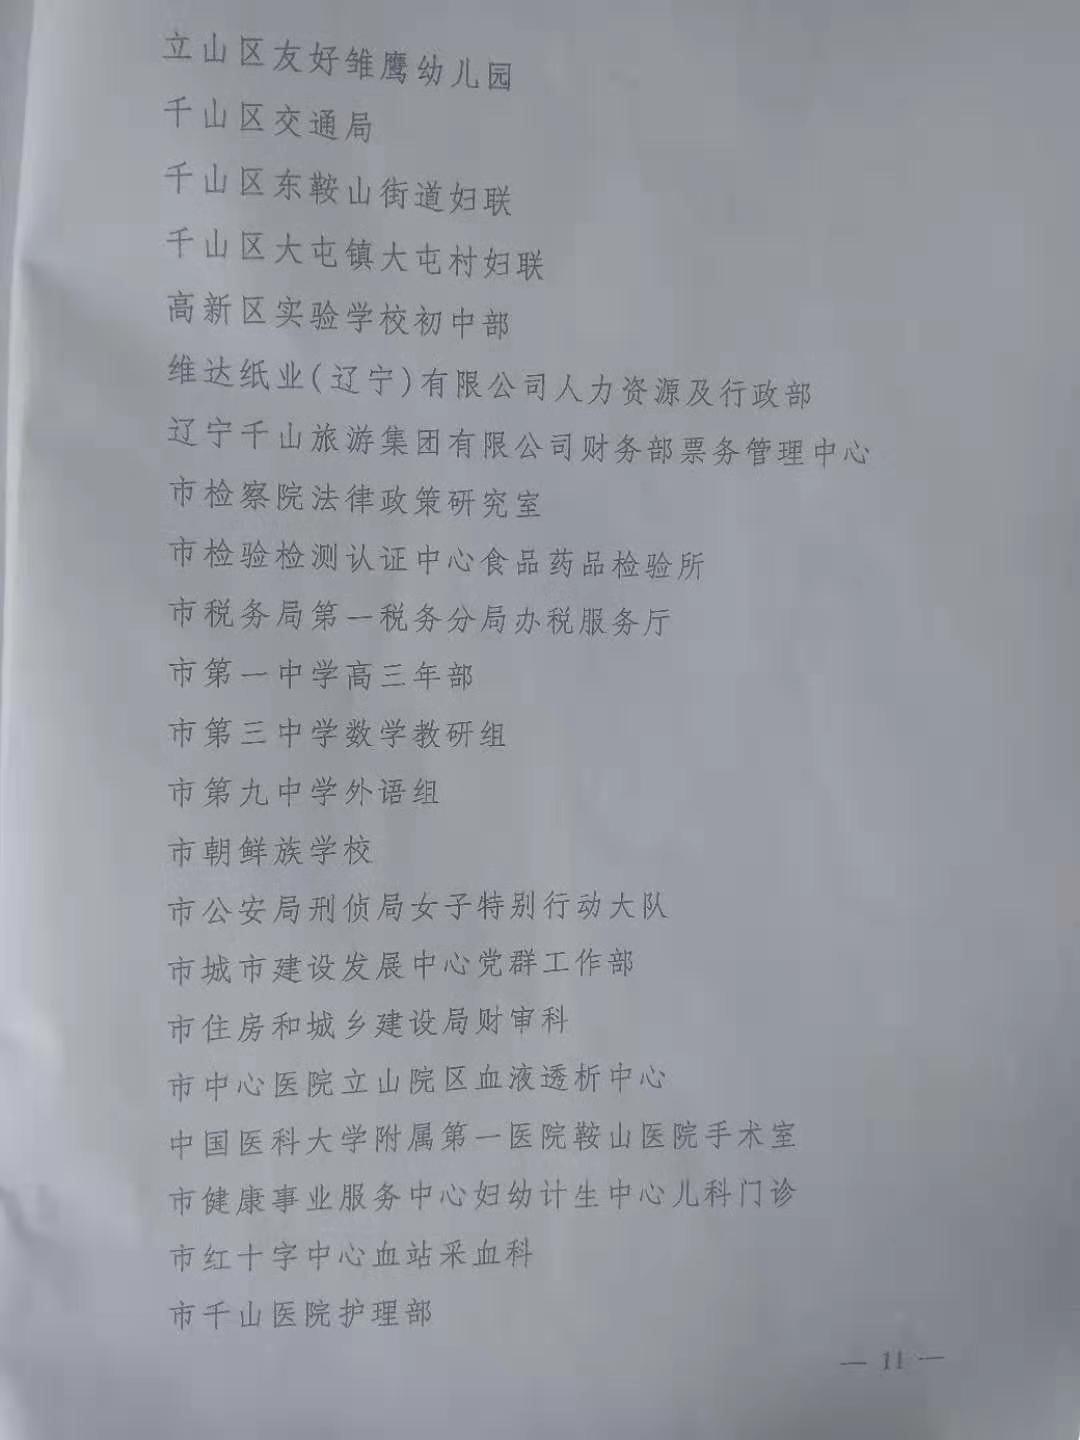 立山区友好雏鹰幼儿园
千山区交通局
千山区东鞍山街道妇联
千山区大屯镇大屯村妇联
高新区实验学校初中部
维达纸业(辽宁)有限公司人力资源及行政部
辽宁千山旅游集团有限公司财务部票务管理中心
市检察院法律政策研究室
市检验检测认证中心食品药品检验所
市税务局第一税务分局办税服务厅
市第一中学高三年部
市第三中学数学教研组
市第九中学外语组
市朝鲜族学校
市公安局刑侦局女子特别行动大队
市城市建设发展中心党群工作部
市住房和城乡建设局财审科
市中心医院立山院区血液透析中心
中国医科大学附属第一医院鞍山医院手术室
市健康事业服务中心妇幼计生中心儿科门诊
市红十字中心血站采血科
市千山医院护理部
— 11 —